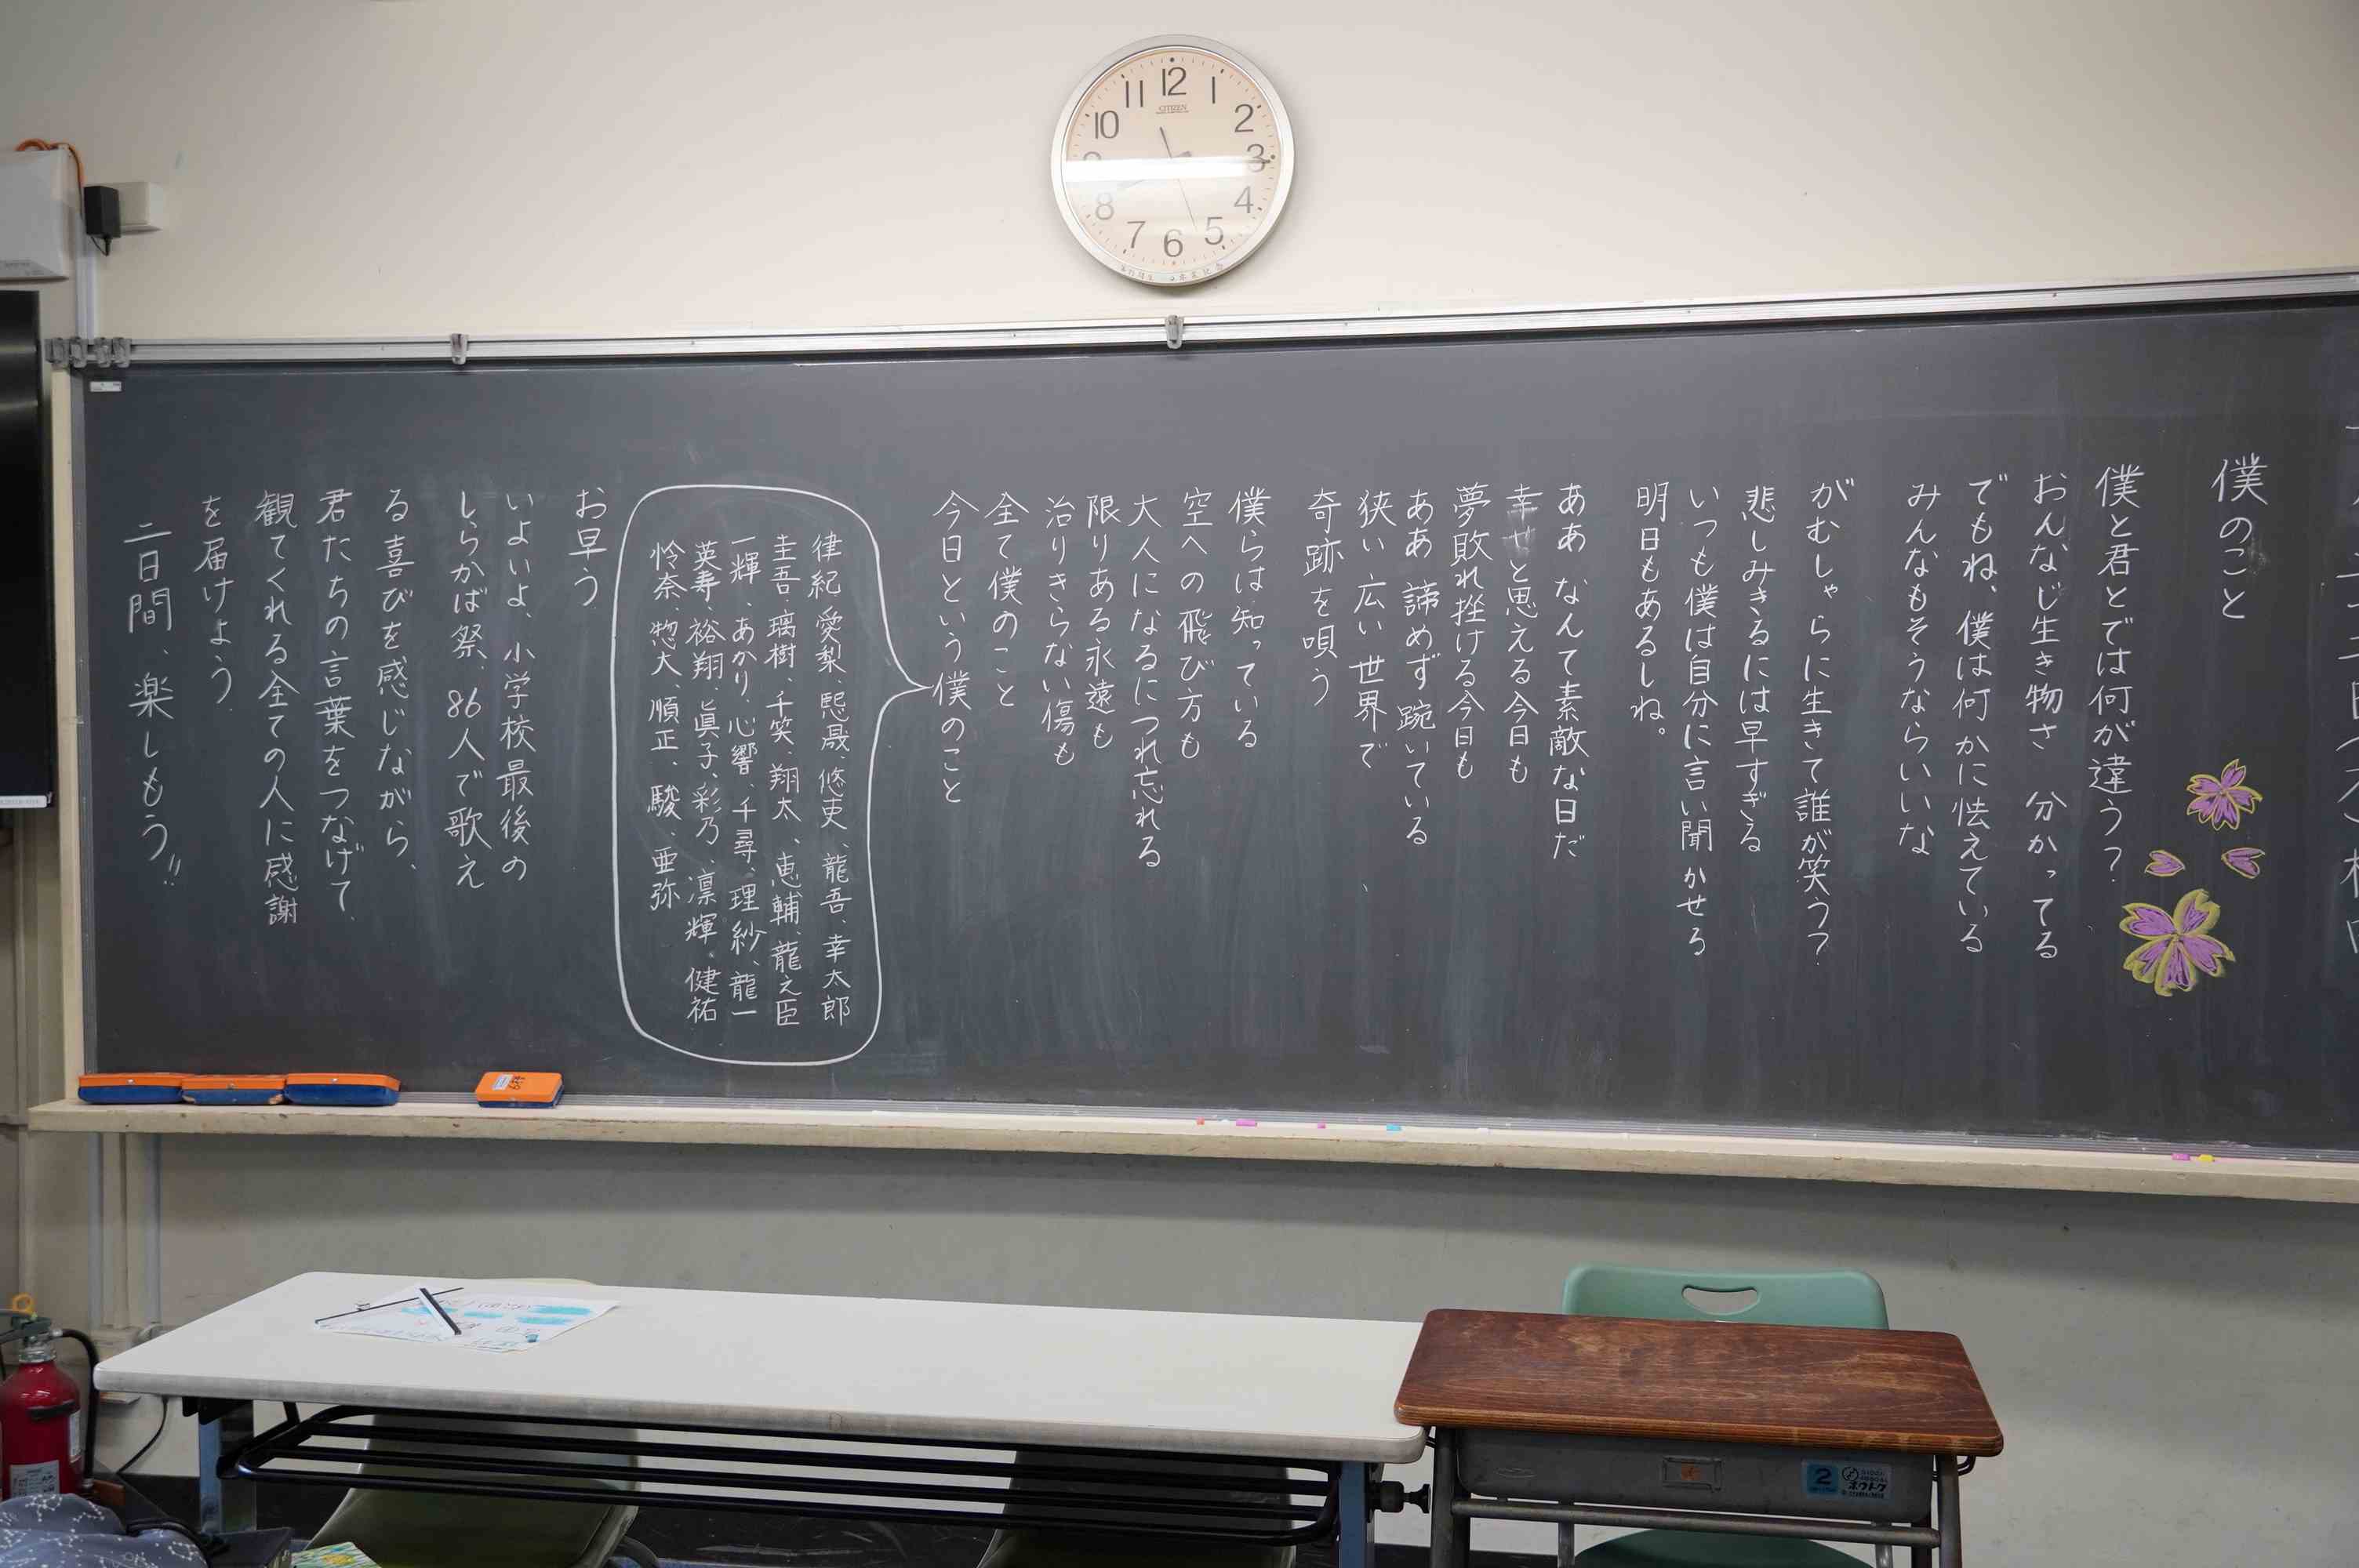 僕のこと
僕と君とでは何が違う?
おんなじ生き物さ 分かってる
でもね、僕は何かに怯えている
みんなもそうならいいな
がむしゃらに生きて誰が笑う?
悲しみきるには早すぎる
いつも僕は自分に言い聞かせる
明日もあるしね。
ああ なんて素敵な日だ
幸せと思える今日も
夢敗れ挫ける今日も
ああ 諦めず踠いている
狭い広い世界で
奇跡を唄う
僕らは知っている
空への飛び方も
大人になるにつれ忘れる
限りある永遠も
治りきらない傷も
全て僕のこと
今日という僕のこと
律紀、愛梨、熙晟、悠吏、龍吾、幸太郎
圭吾、璃樹、千笑、翔太、恵輔、龍之臣
一輝、あかり、心響、千尋、理紗、龍一
英寿、裕翔、眞子、彩乃、凛輝、健祐
怜奈、惣大、順正、駿、亜弥
お早う
いよいよ、小学校最後の
しらかば祭、86人で歌え
る喜びを感じながら、
君たちの言葉をつなげて、
観てくれる全ての人に感謝
を届けよう。
二日間、楽しもう!!
12
1
2
3
4
5
6
7
8
10
11
CITIZEN
2
ホウトク